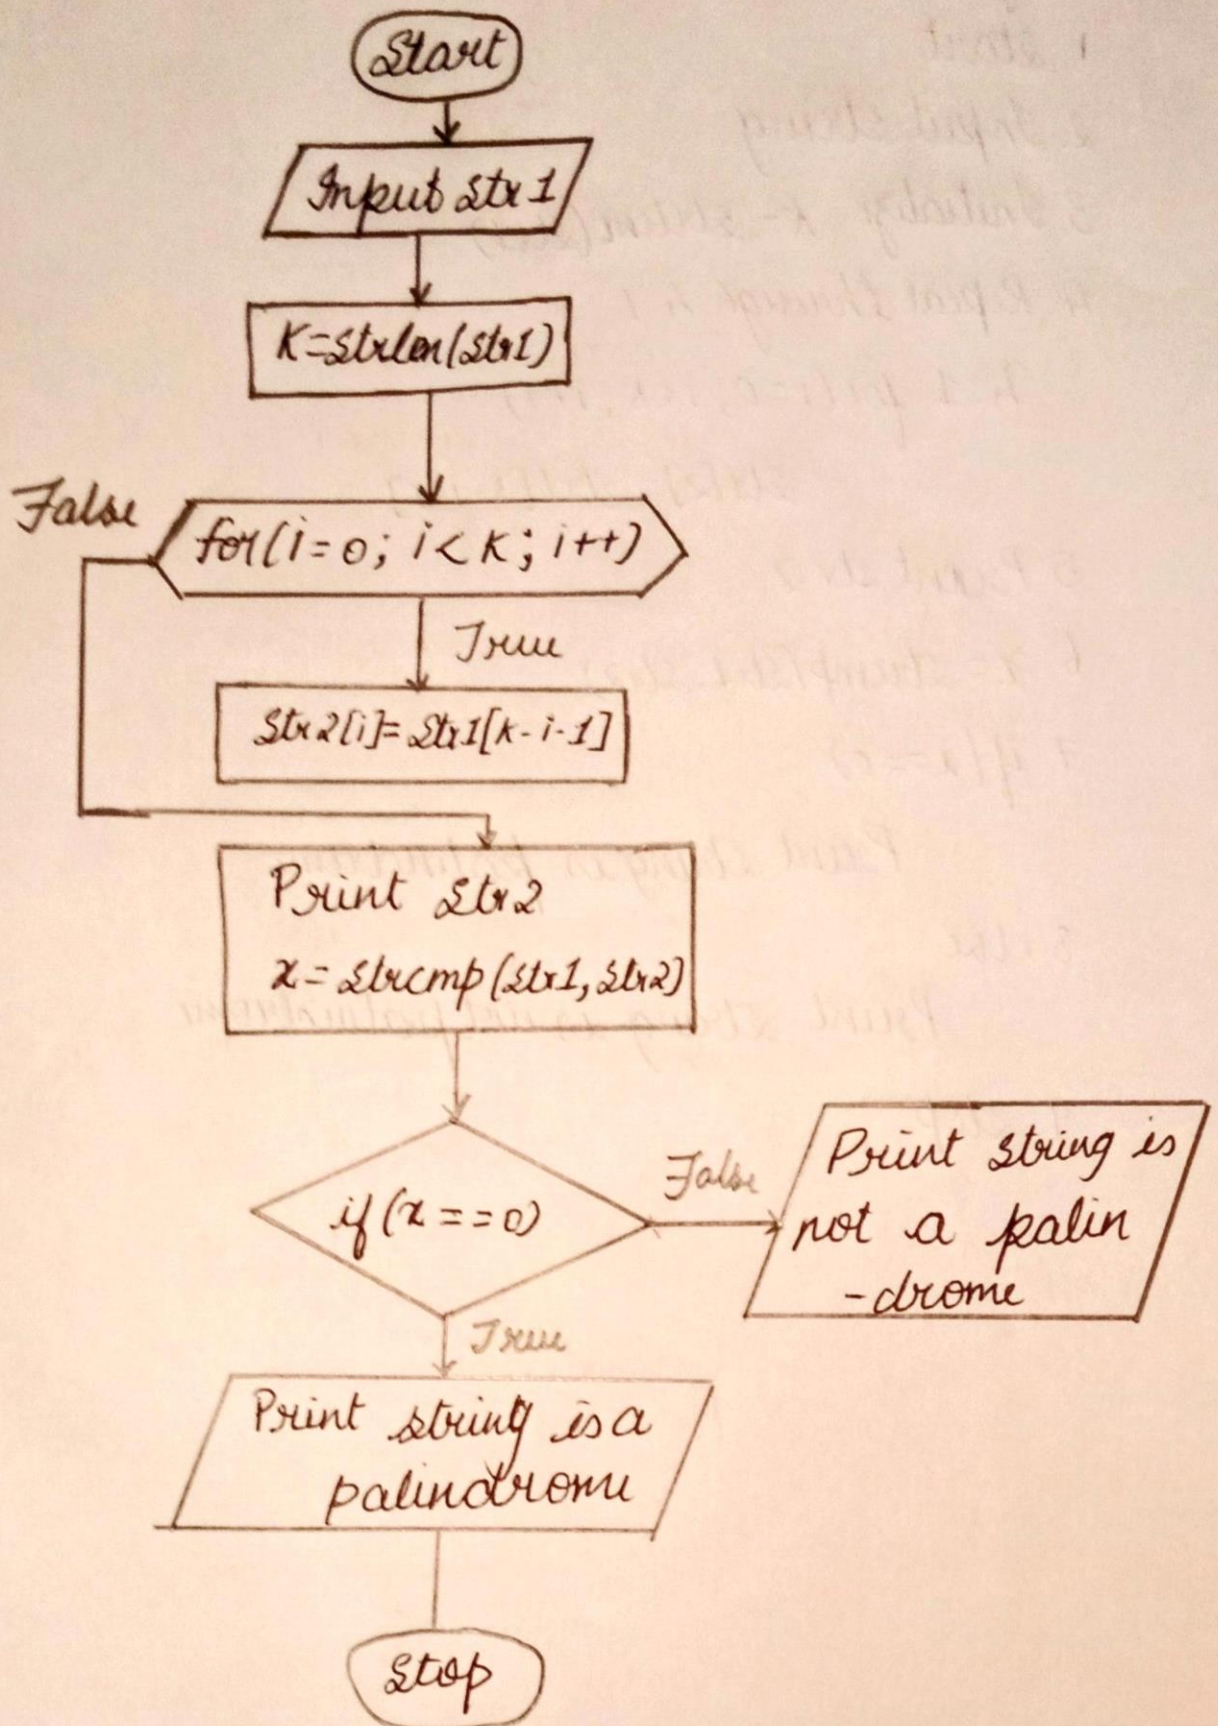 Start
Input Str1
K=Strlen(Str1)
False
for(i=0; i<K; i++)
True
Str2[i]=Str1[k-i-1]
Print Str2
x=Strcmp(Str1,Str2)
if(x==0)
False
Print string is
not a palin
-drome
True
Print string is a
palindrome
Stop